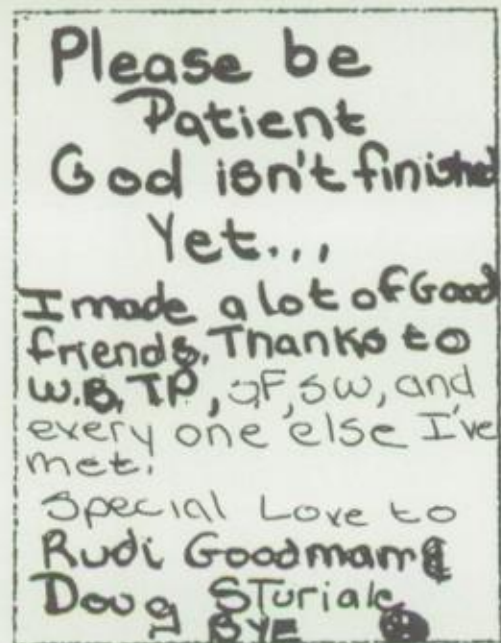 Please be
Patient
God isn't finished
Yet...
I made a lot of Good
friends. Thanks to
W.B, T.P, JF, SW, and
every one else I've
met.
Special Love to
Rudi Goodman &
Doug STuriale
BYE